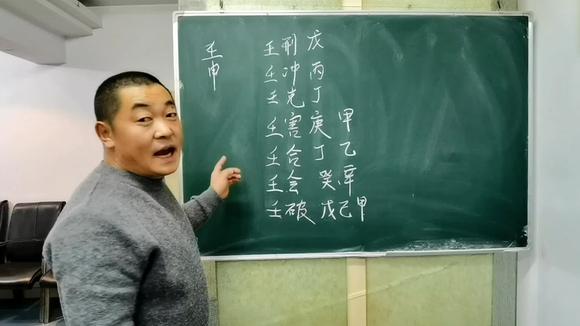 壬申
壬刑 戊
壬冲 丙
壬克 丁
壬害 庚 甲
壬合 丁 乙
壬会 癸 辛
壬破 戊己甲